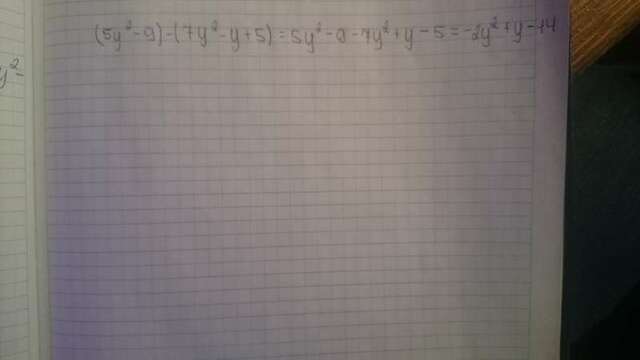 (5y²-9)-(7y²-y+5)=5y²-9-7y²+y-5=-2y²+y-14
y²-